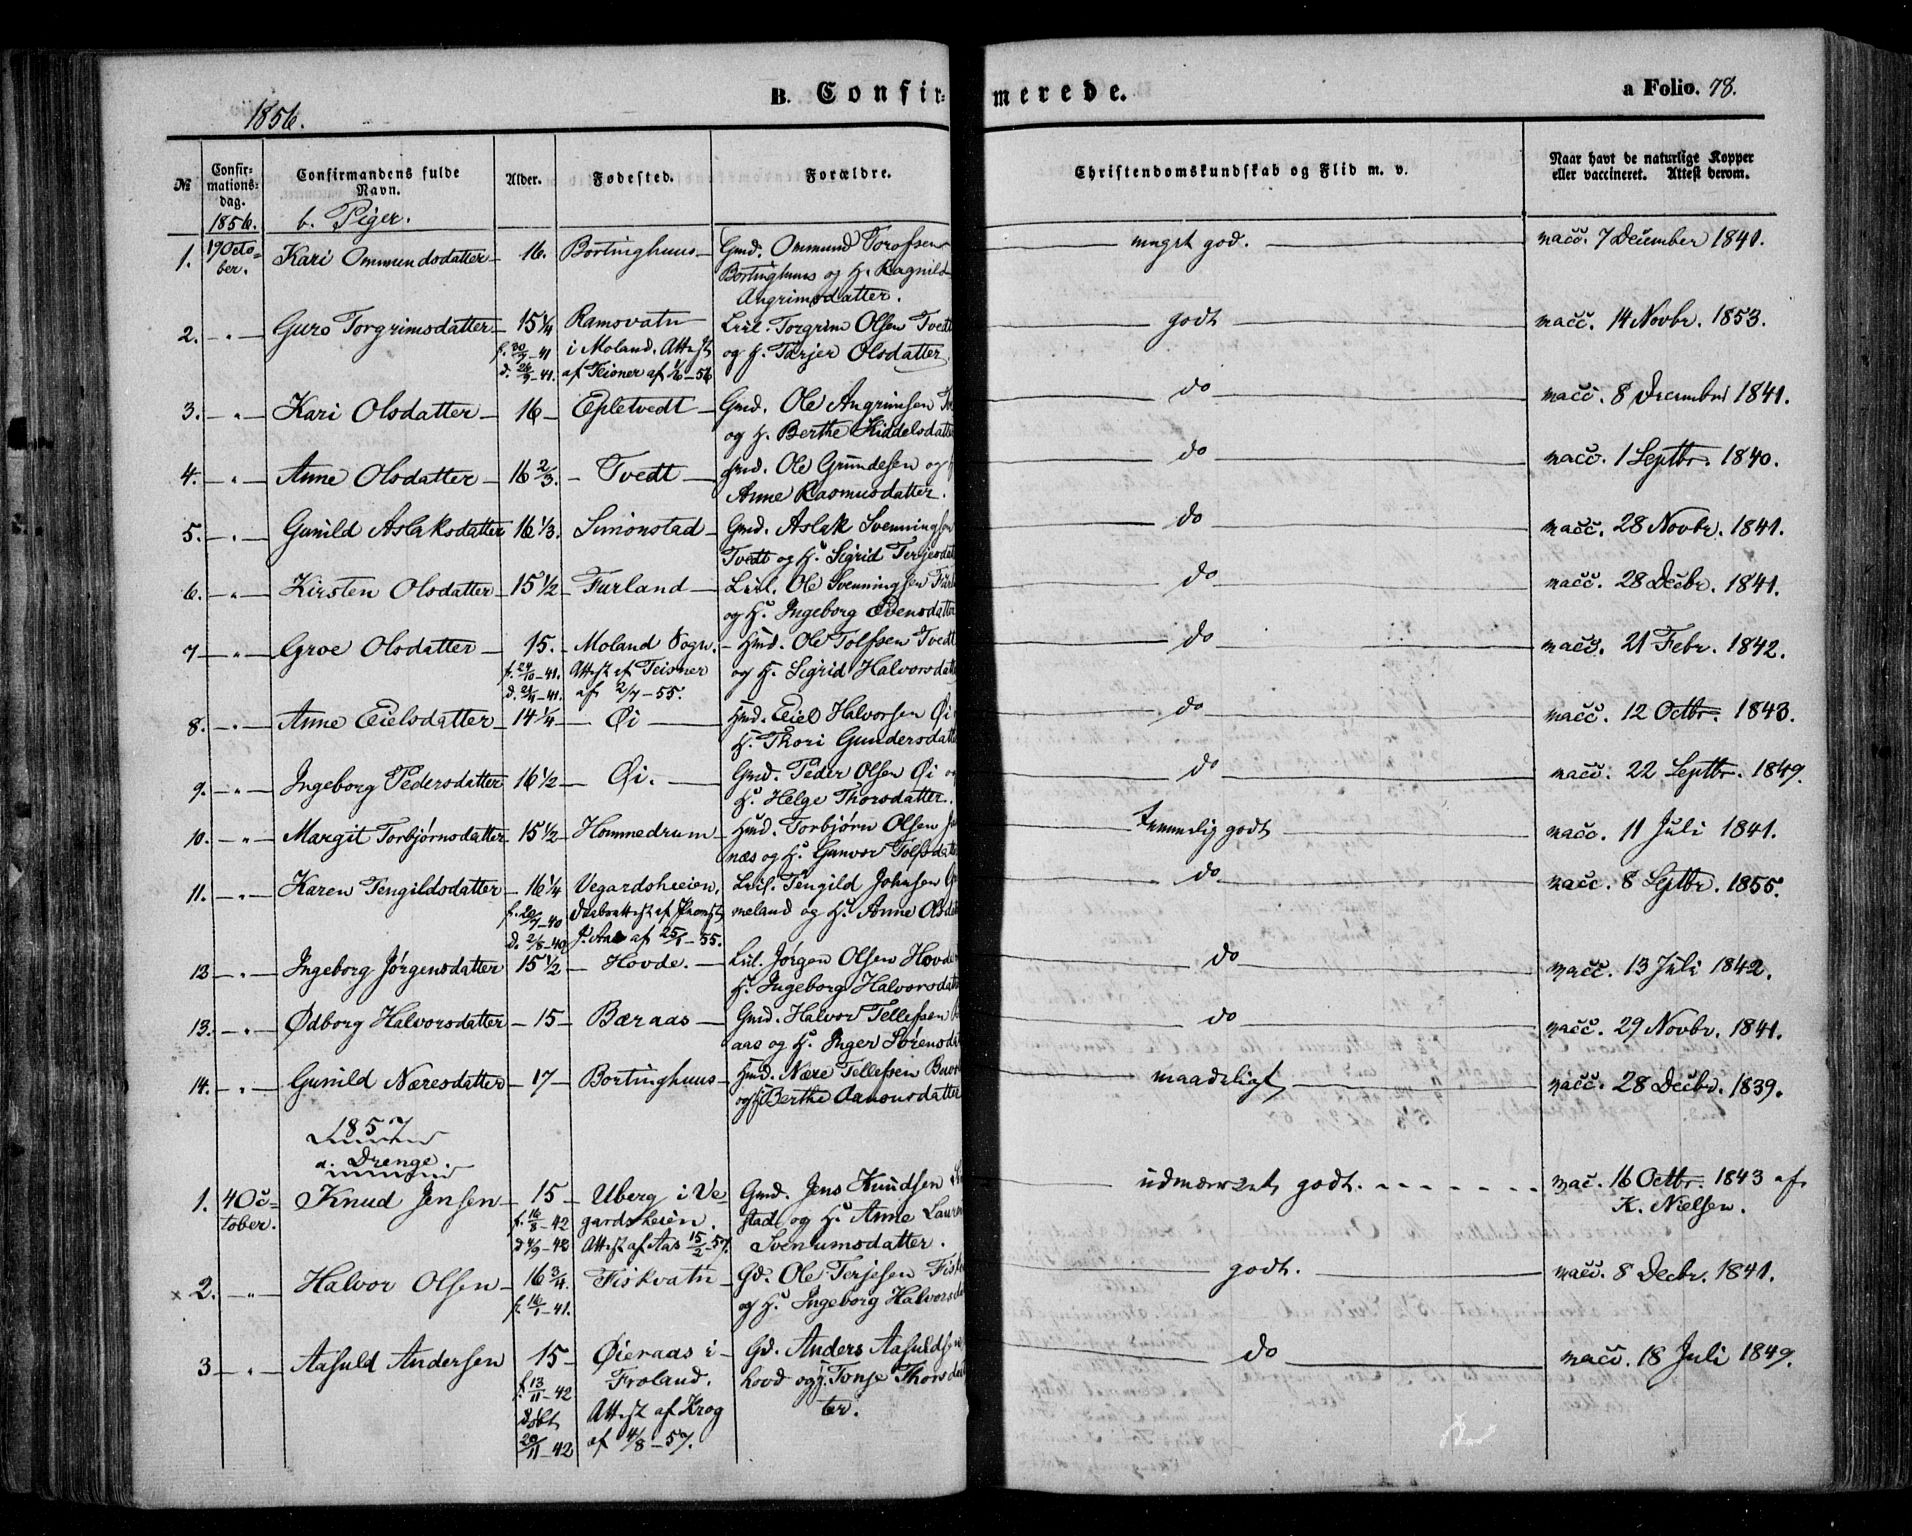 1856.
B. Confirmerede.
a Folio. 78.
№ Confirmationsdag. Confirmandens fulde Navn. Alder. Fødested. Forældre. Christendomskundskab og Flid m. v. Naar havt de naturlige Kopper eller vaccineret. Attest derom.
1856. b. Piger.
1. 19 October. Kari Ommundsdatter 16. Bortinghuus Gmd. Ommund Torofsen meget god. vacc. 7 December 1841.
Bortinghuus og H. Ragnild
Angrimsdatter.
2. " Guro Torgrimsdatter 15 1/4 Ramsvatn Torgrim Olsen Tvedt godt vacc. 14 Novbr. 1853.
f. 30/7-41 i Moland. Attest og H. Tarjer Olsdatter
d. 26/9-41. af Teisner af 1/6-56
3. " Kari Olsdatter 16 Epletvedt Gmd. Ole Angrimsen do vacc. 8 December 1841.
og H. Berthe Kiddelsdatter
4. " Anne Olsdatter 16 2/3. Tvedt Gmd. Ole Grundesen og do vacc. 1 Septbr. 1840.
Anne Rasmusdatter.
5. " Gunild Aslaksdatter 16 1/3. Simonstad Gmd. Aslak Svenningsen do vacc. 28 Novbr. 1841.
Tvedt og H. Sigrid Terjesdat
6. " Kirsten Olsdatter 15 1/2 Furland Ole Svenningsen do vacc. 28 Decbr. 1841.
og H. Ingeborg Evensdatter
7 " Groe Olsdatter 15. Moland Sogn. Hmd. Ole Tolfsen Tvedt do vacc. 21 Febr. 1842.
f. 24/10-41. Attest af Teisner og H. Sigrid Halvorsdatt
af 2/7-55.
8. " Anne Eielsdatter 14 1/4 Øi Hmd. Eiel Halvorsen Øi do vacc. 12 Octbr. 1843.
H. Thori Gundersdatt
9. " Ingeborg Pedersdatter 16 1/2 Øi. Gmd. Peder Olsen Øi do vacc. 22 Septbr. 1849.
H. Helge Thorsdatter.
10. " Margit Torbjørnsdatter 15 1/2 Hommedrum Hmd. Torbjørn Olsen temmelig godt vacc. 11 Juli 1841.
næs og H. Gunvor Tolfsdatt
11. " Karen Tengildsdatter 16 1/4 Vegardsheien. Tengild Johnsen do vacc. 8 Septbr. 1855.
f. 20/7-40 meland og H. Anne Olsdat
d. 2/8-40 P. Aas af 25/8-55.
12 " Ingeborg Jørgensdatter 15 1/2 Hovde. Jørgen Olsen Hovde do vacc. 13 Juli 1842.
H. Ingeborg Halvorsdat
13. " Ødborg Halvorsdatter 15 Bæraas Gmd. Halvor Tellefsen do vacc. 29 Novbr. 1841.
aas og H. Inger Sørensdat
14. " Gunild Næresdatter 17 Bortinghuus Hmd. Nære Tellefsen maadeligt vacc. 28 Decbr. 1839.
og H Berthe Aanonsdatter
1857
a. Drenge.
1. 4 October. Knud Jensen 15 Uberg i Vegardsheien. Gmd. Jens Knudsen udmærket godt. vac. 16 Octbr. 1843 af
f. 16/8-42 stad og H. Anne Lauren K. Nielsen.
d 4/9-42 Attest af Aas 15/2-57. Svenumsdatter.
× 2. " Halvor Olsen 16 3/4. Fiskvatn Gd. Ole Terjesen Fisk godt. vacc. 8 Decbr. 1841.
f. 16/1-41. og H. Ingeborg Halvorsda
3 " Aasuld Andersen 15 Øieraas i Gd. Anders Aasuldsen do vacc. 18 Juli 1849.
f. 13/11-42 Froland. hovd og H. Tonje Thorsdatter.
døbt Attest af Krog
20/11-42 af 4/8-57.